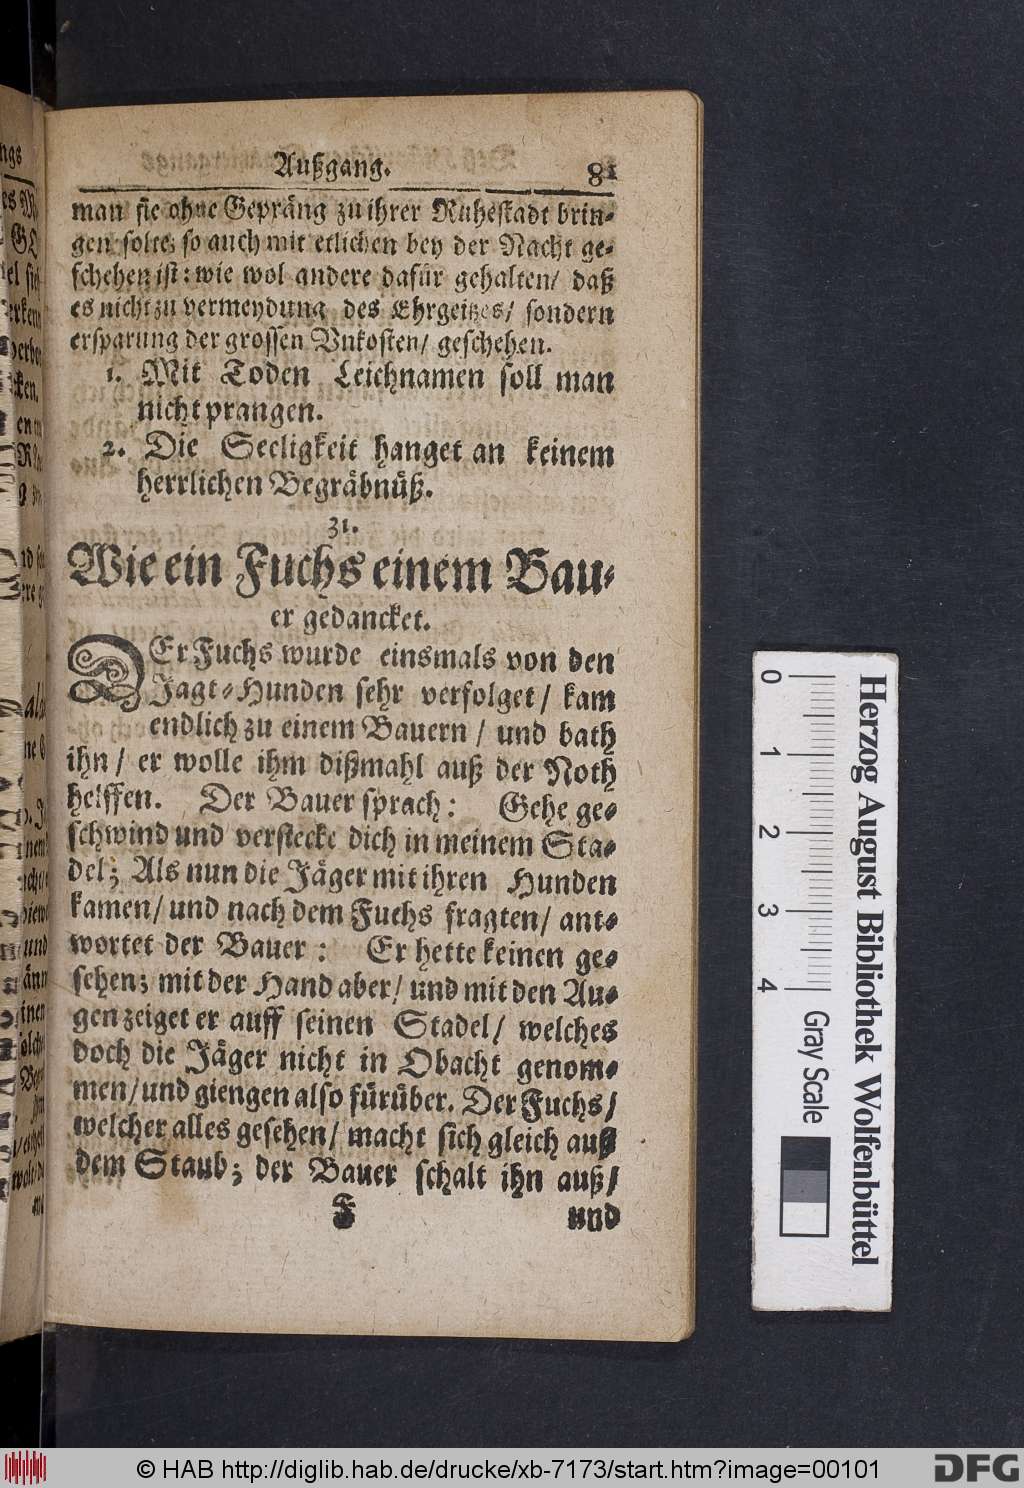 Außgang. 81
man sie ohne Gepräng zu ihrer Ruhestadt brin-
gen solte; so auch mit etlichen bey der Nacht ge-
schehen ist: wie wol andere dafür gehalten/ daß
es nicht zu vermeydung des Ehrgeitzes/ sondern
ersparung der grossen Vnkosten/ geschehen.
1. Mit Toden Leichnamen soll man
nicht prangen.
2. Die Seeligkeit hanget an keinem
herrlichen Begräbnüß.
31.
Wie ein Fuchs einem Bau-
er gedancket.
DEr Fuchs wurde einsmals von den
Jagt-Hunden sehr verfolget/ kam
endlich zu einem Bauern/ und bath
ihn/ er wolle ihm dißmahl auß der Noth
helffen. Der Bauer sprach: Gehe ge-
schwind und verstecke dich in meinem Sta-
del; Als nun die Jäger mit ihren Hunden
kamen/ und nach dem Fuchs fragten/ ant-
wortet der Bauer: Er hette keinen ge-
sehen; mit der Hand aber/ und mit den Au-
gen zeiget er auff seinen Stadel/ welches
doch die Jäger nicht in Obacht genom-
men/ und giengen also fürüber. Der Fuchs/
welcher alles gesehen/ macht sich gleich auß
dem Staub; der Bauer schalt ihn auß/
F und
0 1 2 3 4 Gray Scale
Herzog August Bibliothek Wolfenbüttel
© HAB http://diglib.hab.de/drucke/xb-7173/start.htm?image=00101 DFG